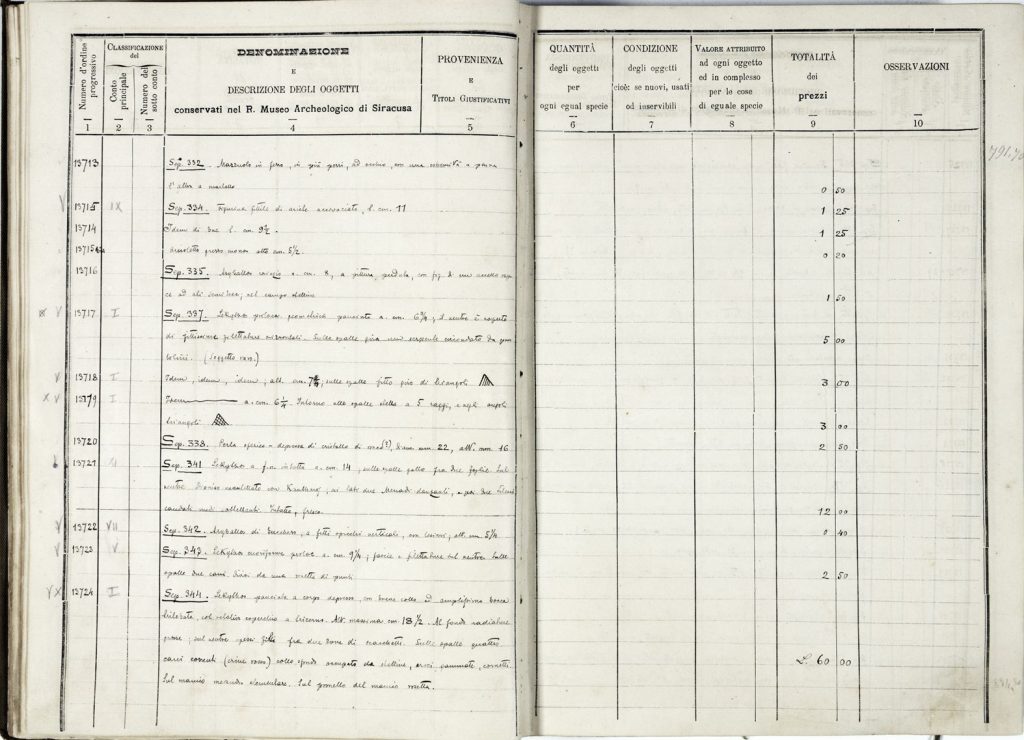 Numero d'ordine progressivo
CLASSIFICAZIONE del
Conto principale
Numero del sotto conto
DENOMINAZIONE
E
DESCRIZIONE DEGLI OGGETTI
conservati nel R. Museo Archeologico di Siracusa
PROVENIENZA
E
TITOLI GIUSTIFICATIVI
QUANTITÀ
degli oggetti
per
ogni egual specie
CONDIZIONE
degli oggetti
cioè: se nuovi, usati
od inservibili
VALORE ATTRIBUITO
ad ogni oggetto
ed in complesso
per le cose
di eguale specie
TOTALITÀ
dei
prezzi
OSSERVAZIONI
1 2 3 4 5 6 7 8 9 10
791.70
13713 Sep. 332. in ferro, in più pezzi, ad occhio, con una estremità a penna
l'altra a martello 0 50
V 13715 IX Sep. 334. Figurina fittile di ariete accovacciato, l. cm. 11 1 25
13714 Idem di bue l. cm. 9½. 1 25
13715 bis grezzo mono alto cm. 5½. 0 20
13716 Sep. 335. Aryballos corinzio a. cm. 8, a pittura perduta, con fig. di uccello
ad ali; nel campo stelline 1 50
V 13717 I Sep. 337. Lekythos protoc. panciuta a. cm. 6¾; il ventre è coperto
di fittissime filettature orizzontali. Sulle spalle gira un serpente circondato da
(Soggetto raro.) 5 00
V 13718 I Idem, idem, idem, alt. cm. sulle spalle fitto giro di triangoli 3 00
X V 13719 I Idem a. cm. 6¼. Intorno alle spalle stella a 5 raggi, e negli angoli
triangoli 3 00
13720 Sep. 338. Perla sferica depressa di cristallo di (?), diam. mm. 22, alt. mm. 16 2 50
13721 Sep. 341 Lekythos a f. n. intatta a. cm. 14, sulle spalle gallo fra due foglie. Sul
ventre Dioniso con Kantharos, ai lati due Menadi danzanti, e poi due Sileni
caudati nudi 12 00
V 13722 VII Sep. 342. Aryballos di bucchero, a fitti spicchi verticali, con lesioni; alt. cm. 5¼ 0 40
V 13723 V Sep. 343. Lekythos cuoriforme protoc. a. cm. 9¼; fascie e filettature sul ventre. Sulle
spalle due cani divisi da una rosetta di punti 2 50
V X 13724 I Sep. 344. Lekythos panciuta a corpo depresso, con breve collo ed amplissima bocca
trilobata, col relativo coperchio a tricorno. Alt. massima cm. 18½. Al fondo radiature
; sul ventre pesci fra due zone di scacchetti. Sulle spalle quattro
cani correnti (crine rosso) collo occupato da stelline, croci gammate, L. 60 00
Sul manico meandro. Sul pomello del manico rosetta.